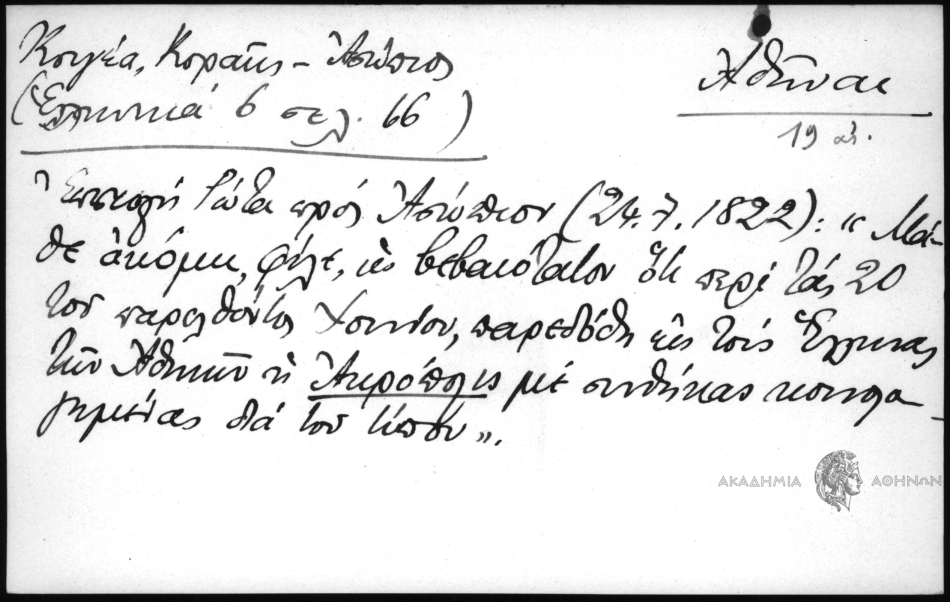 Κουγέα, Κοραῆς – Ἀσώπιος
(Ἑλληνικά 6 σελ. 66)
Ἀθῆναι
19 αἰ.
Ἐπιστολή Ῥώτα πρός Ἀσώπιον (24.7.1822): « Μά-
θε ἀκόμη, φίλε, ὡς βεβαιότατον ὅτι περί τάς 20
τοῦ παρελθόντος Ἰουνίου, παρεδόθη εἰς τούς Ἕλληνας
τῶν Ἀθηνῶν ἡ Ἀκρόπολις μέ συνθήκας κοινολο-
γημένας διά τοῦ τύπου».
ΑΚΑΔΗΜΙΑ ΑΘΗΝΩΝ